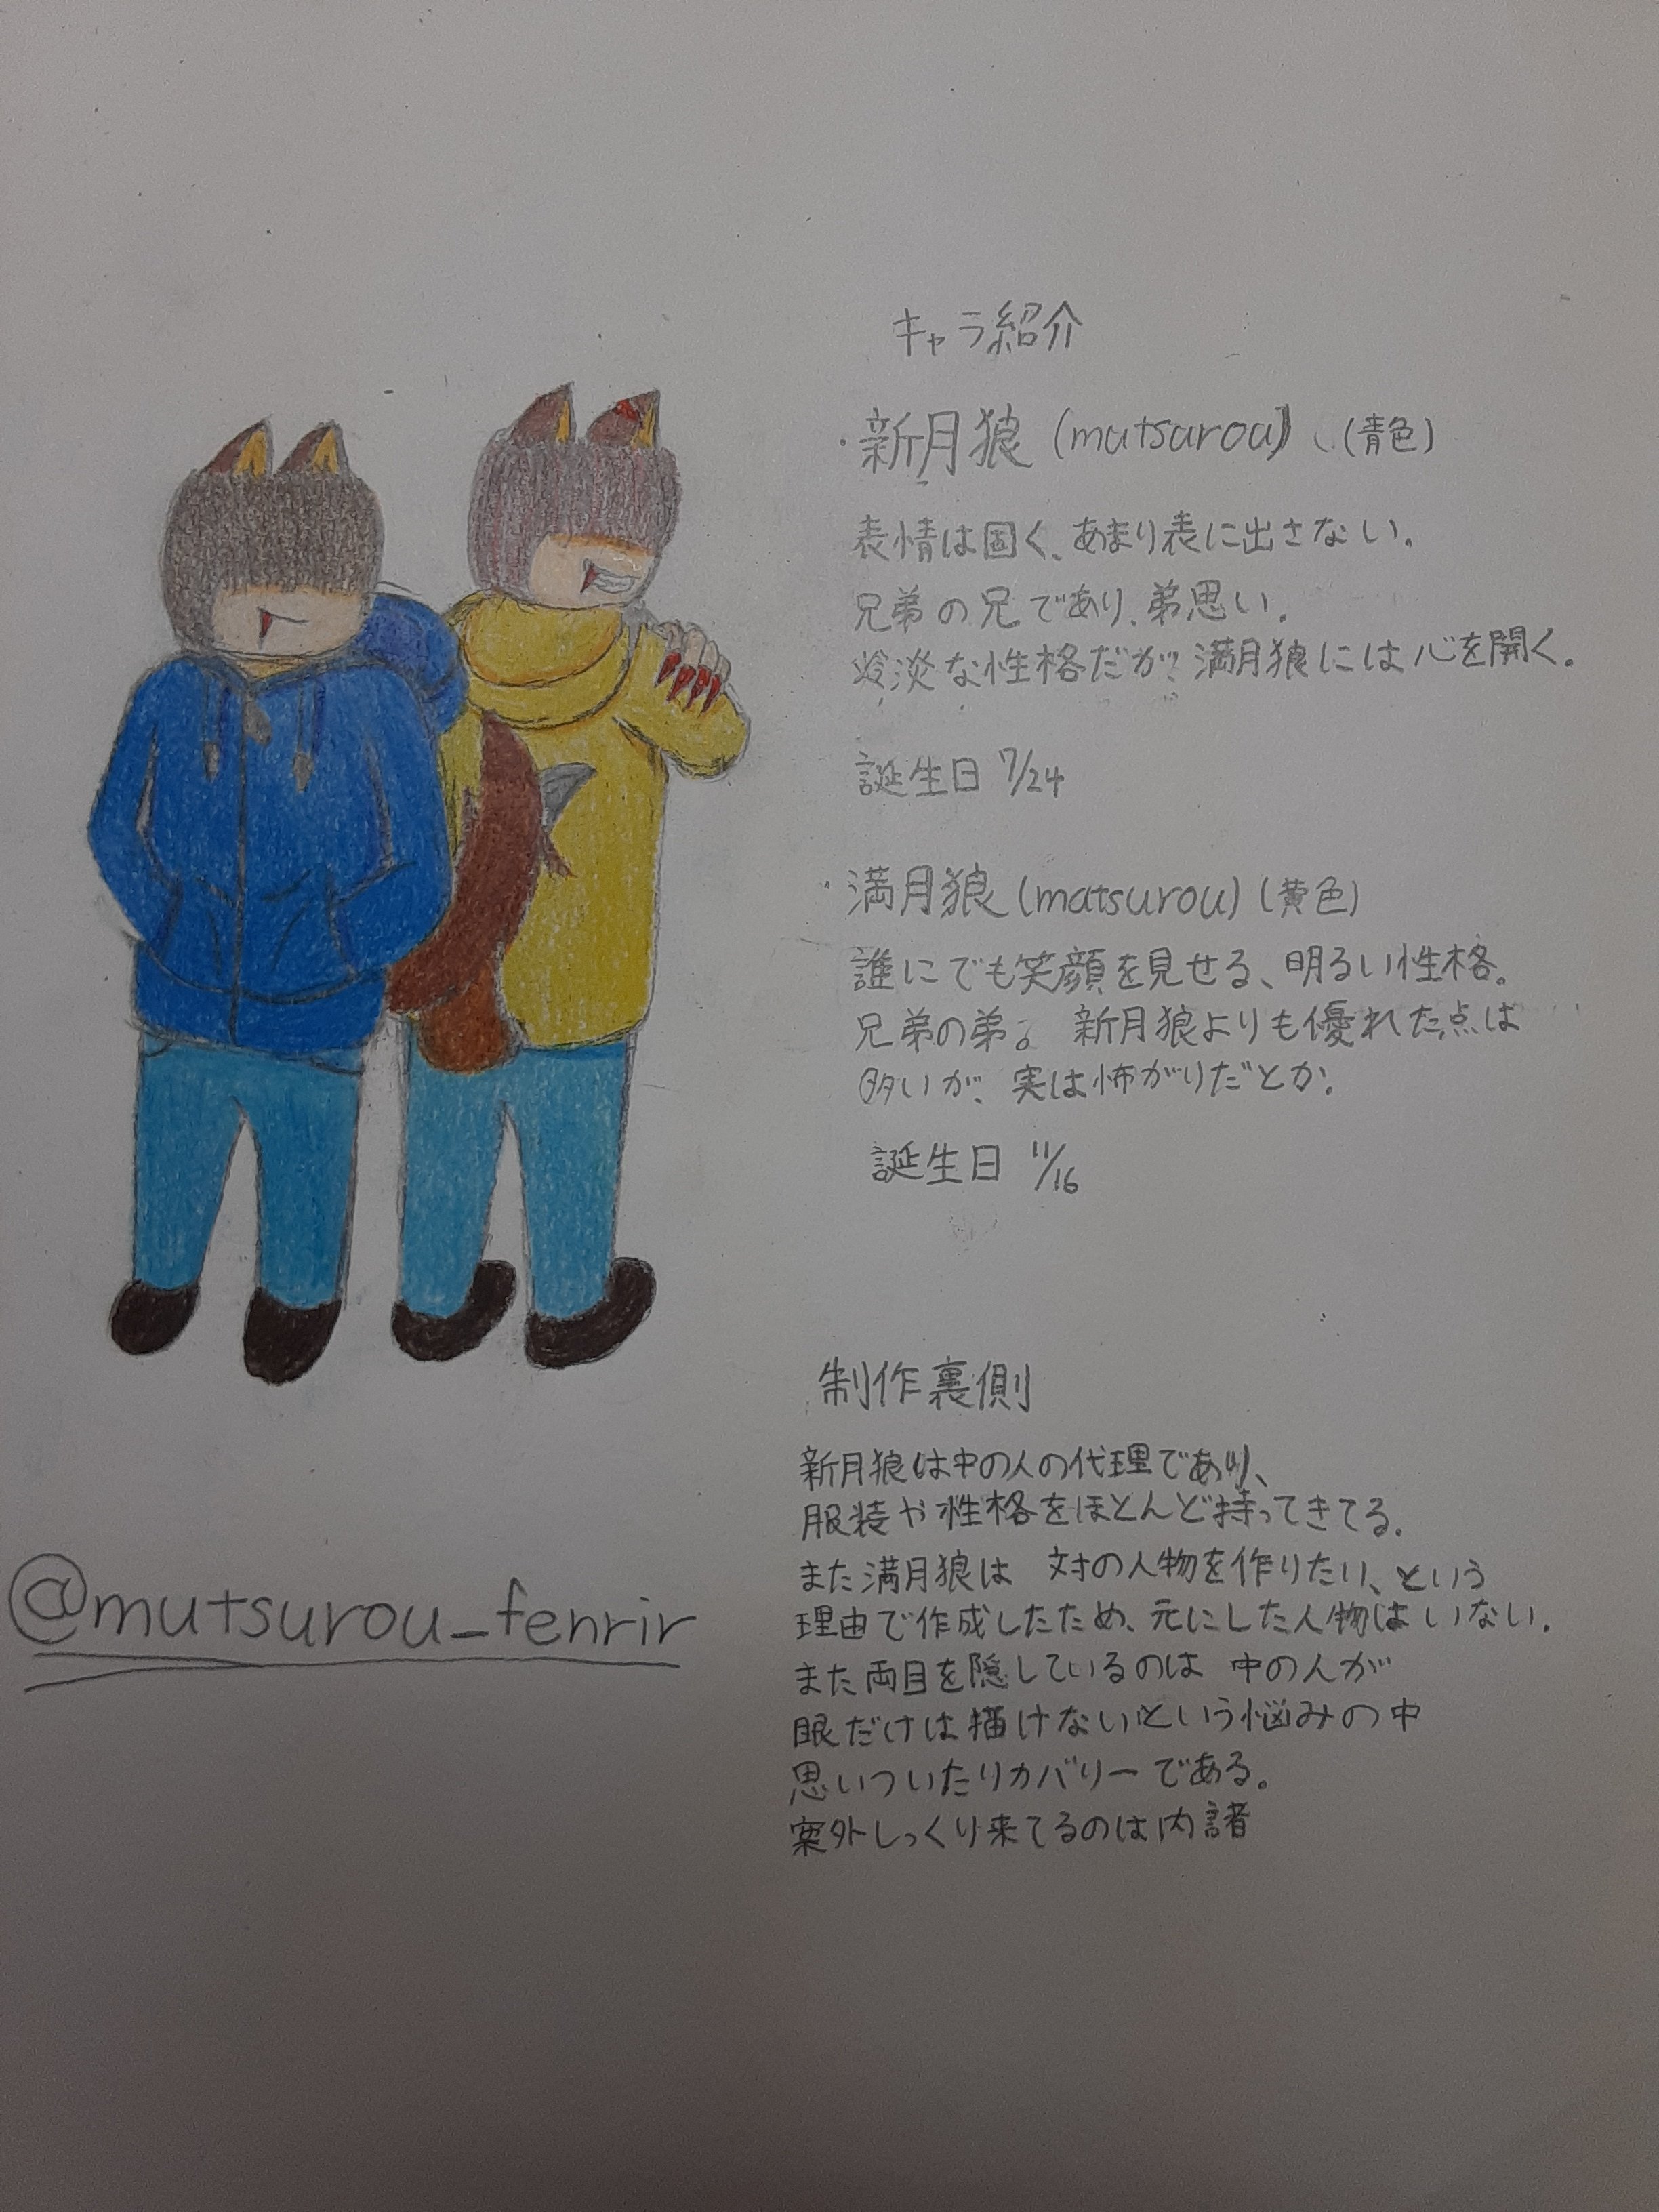 キャラ紹介
・新月狼 (mutsurou) (青色)
表情は固く、あまり表に出さない。
兄弟の兄であり、弟思い。
冷淡な性格だが、満月狼には心を開く。
誕生日 7/24
・満月狼 (matsurou) (黄色)
誰にでも笑顔を見せる、明るい性格。
兄弟の弟。新月狼よりも優れた点は
多いが、実は怖がりだとか。
誕生日 11/16
制作裏側
新月狼は中の人の代理であり、
服装や性格をほとんど持ってきてる。
また満月狼は 対の人物を作りたい、という
理由で作成したため、元にした人物はいない。
また両目を隠しているのは 中の人が
眼だけは描けないという悩みの中
思いついたリカバリーである。
案外しっくり来てるのは内諸
@mutsurou_fenrir